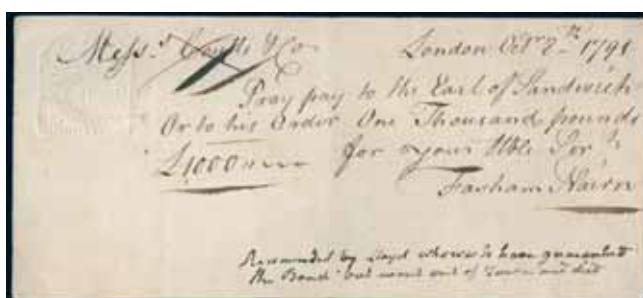 Mess.rs Coutts & Co London Octr 2th 1791
Pray pay to the Earl of Sandwich
Or to his Order One Thousand pounds
£1000 for your Hble Ser.t
Farham Nairn
Recommended by Lloyd who was to have guaranteed
the Bond but went out of Town and died